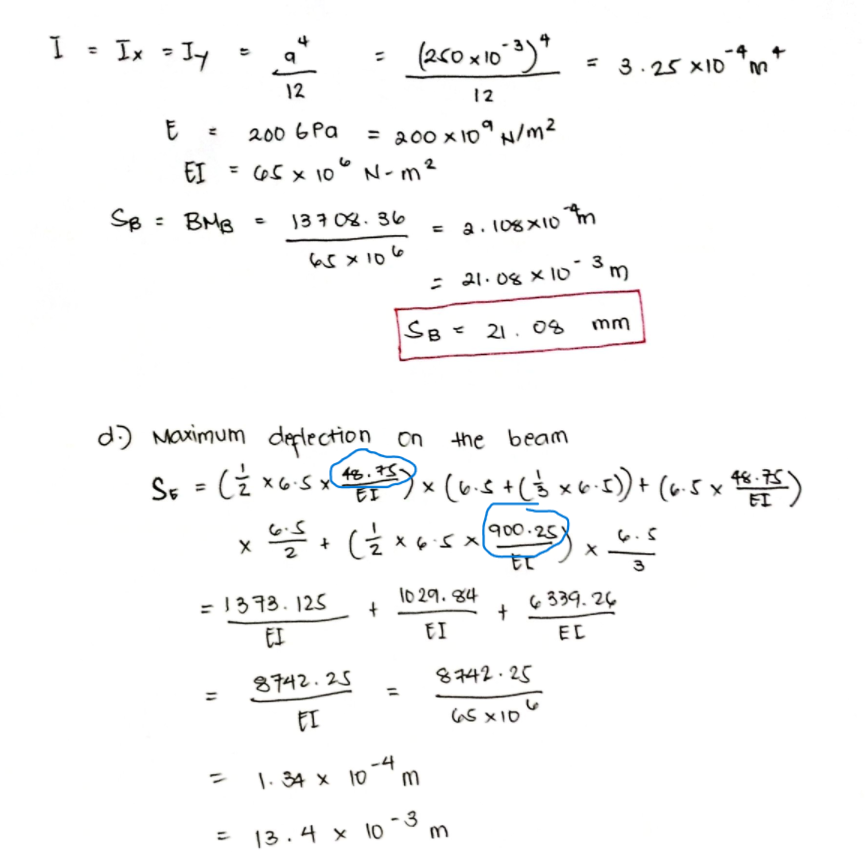 I = Ix = Iy = a⁴/12 = (250 × 10⁻³)⁴/12 = 3.25 × 10⁻⁴ m⁴
E = 200 GPa = 200 × 10⁹ N/m²
EI = 65 × 10⁶ N-m²
SB = BMB = 13708.36/65 × 10⁶ = 2.108 × 10⁻⁴ m
= 21.08 × 10⁻³ m
SB = 21.08 mm
d.) Maximum deflection on the beam
SE = (1/2 × 6.5 × 48.75/EI) × (6.5 + (1/3 × 6.5)) + (6.5 × 48.75/EI)
× 6.5/2 + (1/2 × 6.5 × 900.25/EI) × 6.5/3
= 1373.125/EI + 1029.84/EI + 6339.26/EI
= 8742.25/EI = 8742.25/65 × 10⁶
= 1.34 × 10⁻⁴ m
= 13.4 × 10⁻³ m